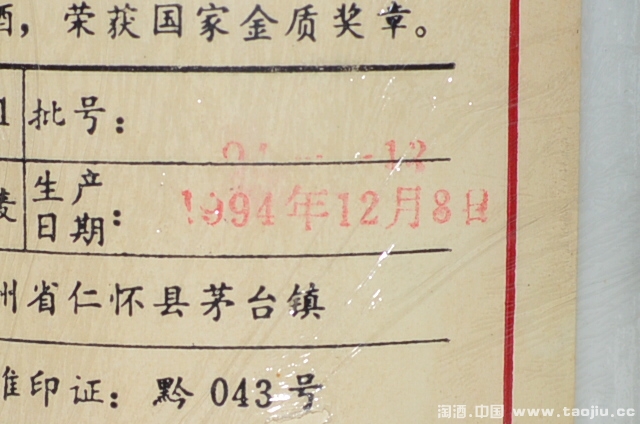 酒，荣获国家金质奖章。
批号：
-12
生产日期：1994年12月8日
州省仁怀县茅台镇
准印证：黔043号
淘酒.中国 www.taojiu.cc